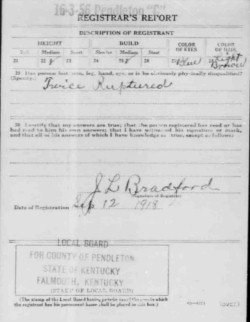 16-3-56 Pendleton "C"
REGISTRAR'S REPORT
DESCRIPTION OF REGISTRANT
HEIGHT BUILD COLOR OF EYES COLOR OF HAIR
Tall Medium Short Slender Medium Stout
Blue Light Brown
Has person lost arm, leg, hand, eye, or is he obviously physically disqualified?
(Specify.) Twice Ruptured
30 I certify that my answers are true; that the person registered has read or has
had read to him his own answers; that I have witnessed his signature or mark,
and that all of his answers of which I have knowledge are true, except as follows:
J. L. Bradford
Date of Registration Sep 12 1918
LOCAL BOARD
FOR COUNTY OF PENDLETON
STATE OF KENTUCKY
FALMOUTH, KENTUCKY
STAMP OF LOCAL BOARD
(The stamp of the Local Board having jurisdiction of the area in which
the registrant has his permanent home shall be placed in this box.)